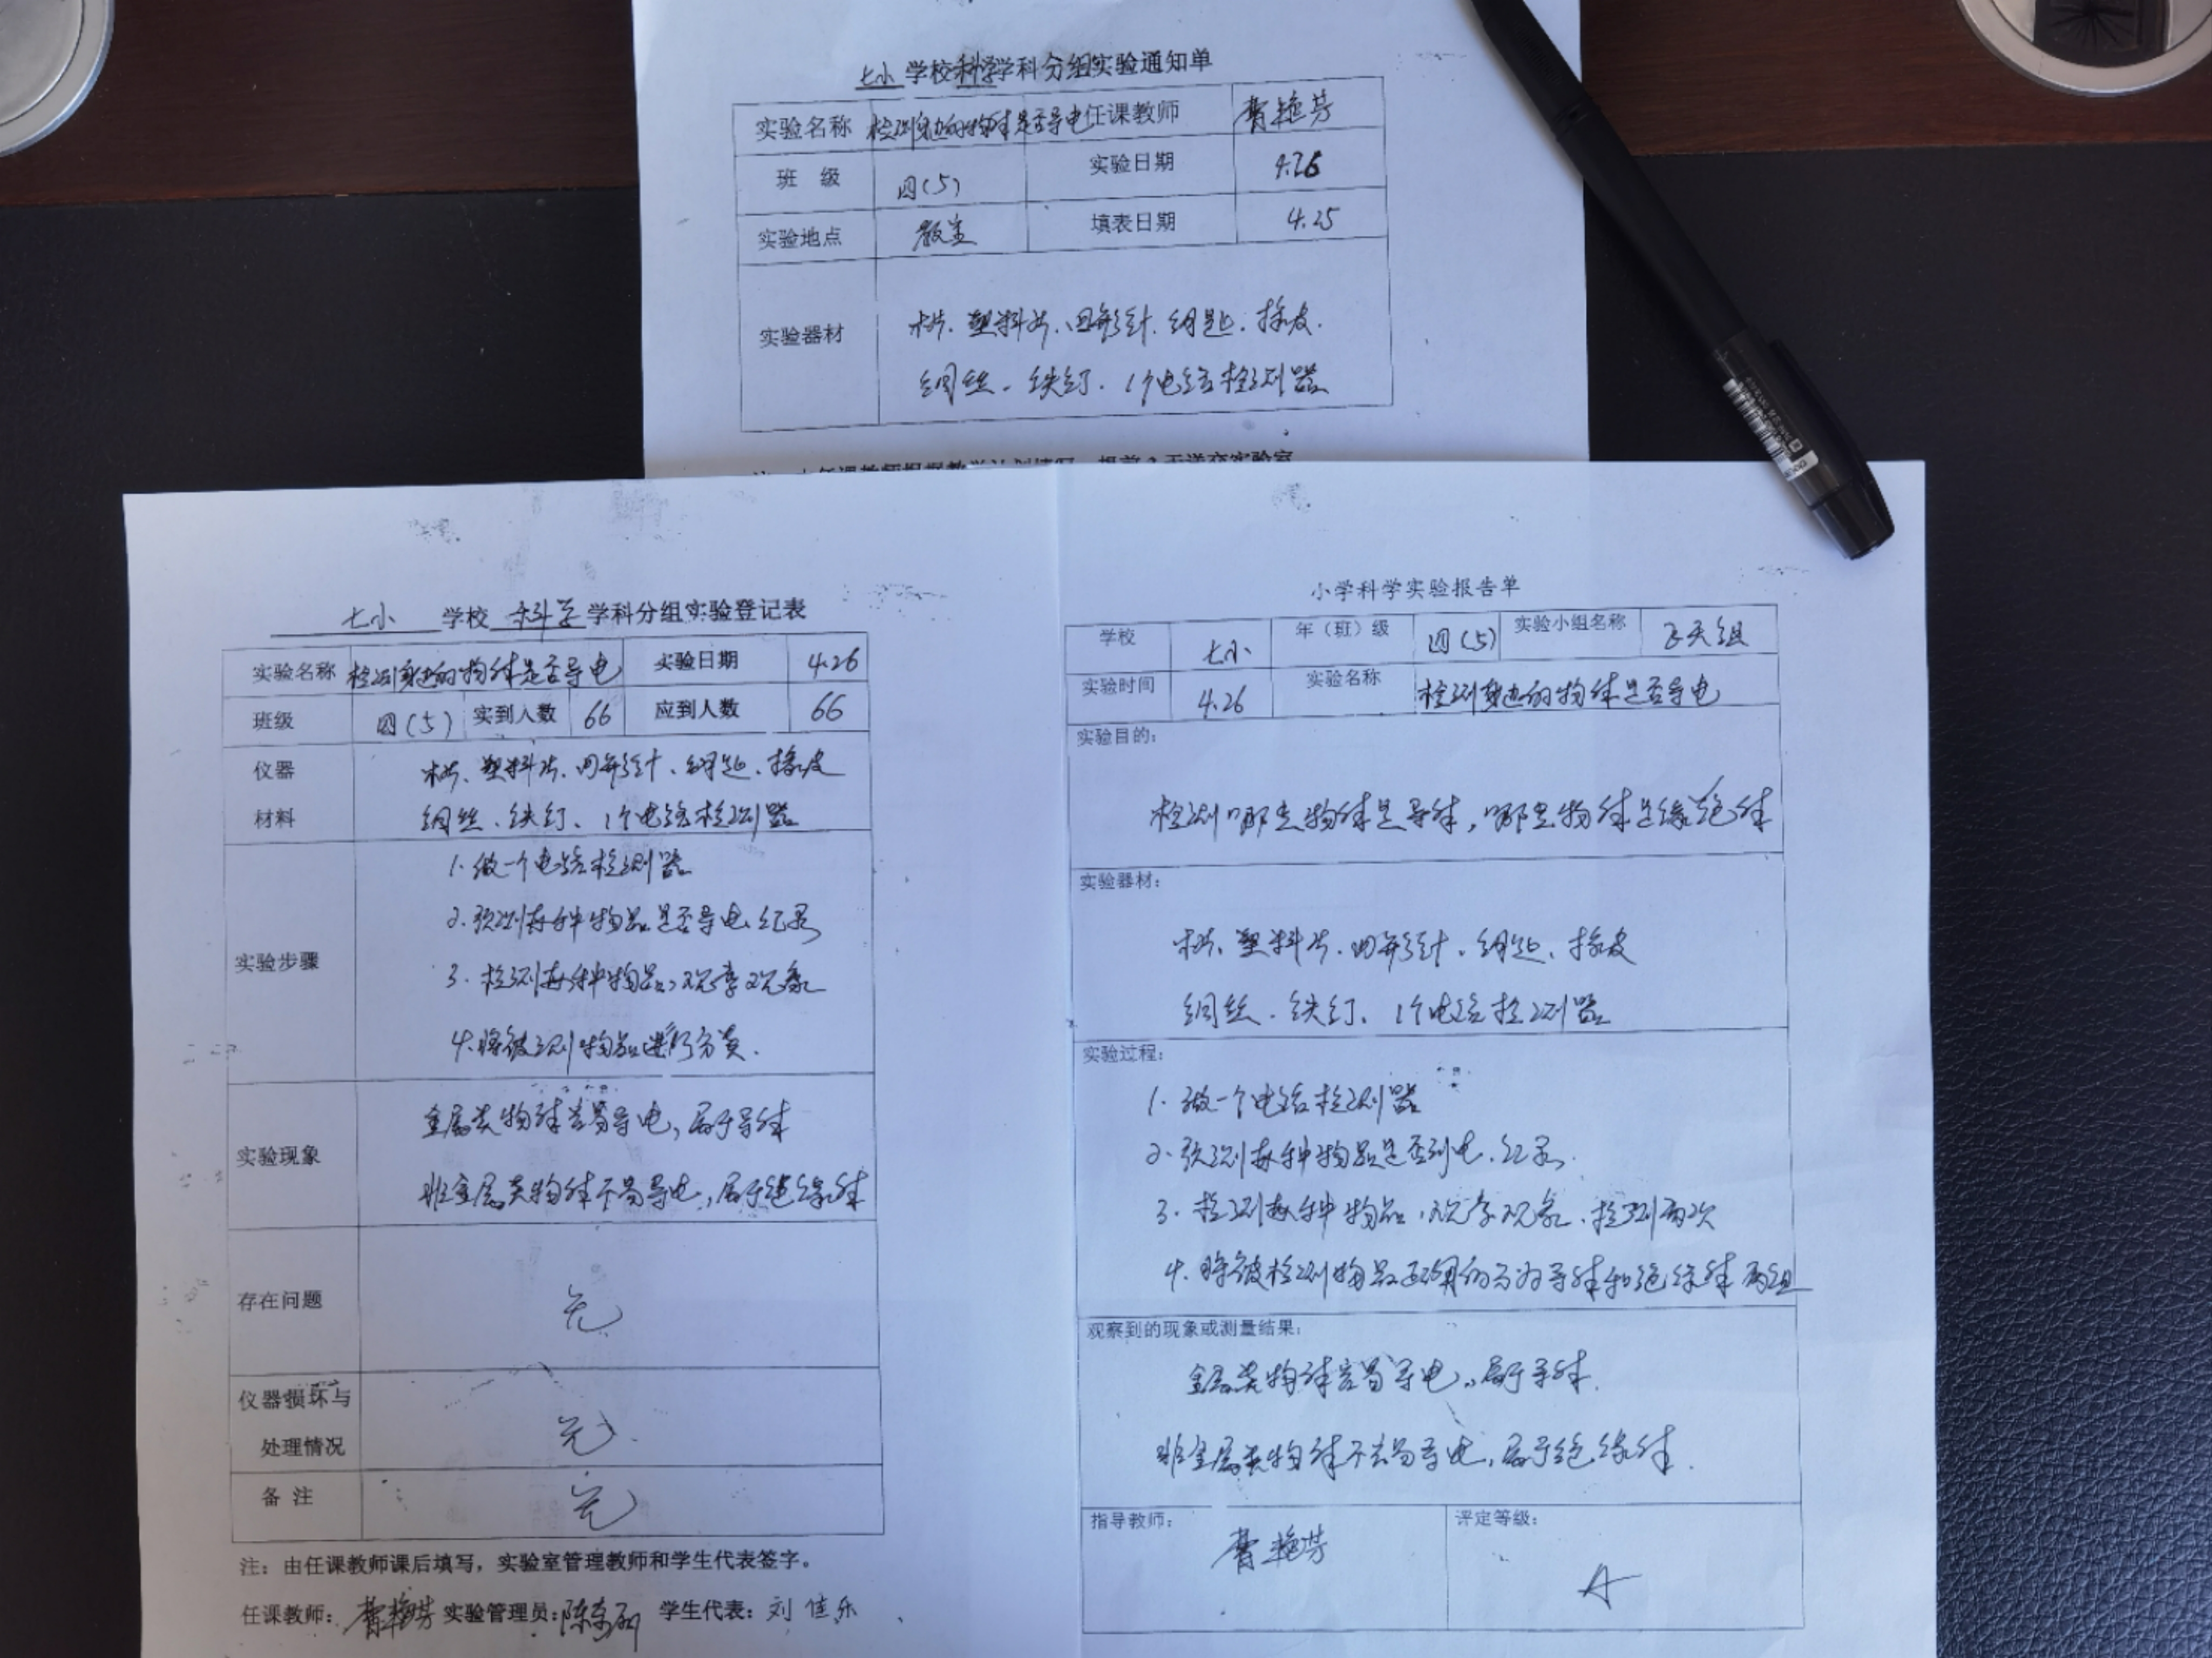 七小 学校 科学 学科分组实验通知单
实验名称 检测身边的物体是否导电 任课教师 曹艳芳
班 级 四(5) 实验日期 4.26
实验地点 教室 填表日期 4.25
实验器材 木片、塑料片、回形针、钥匙、橡皮、
铜丝、铁钉、1个电路检测器
七小 学校 科学 学科分组实验登记表
实验名称 检测身边的物体是否导电 实验日期 4.26
班级 四(5) 实到人数 66 应到人数 66
仪器 木片、塑料片、回形针、钥匙、橡皮
材料 铜丝、铁钉、1个电路检测器
实验步骤
1.做一个电路检测器
2.预测每种物品是否导电,记录
3.检测每种物品,观察现象
4.将被测物品进行分类.
实验现象
金属类物体容易导电,属于导体
非金属类物体不易导电,属于绝缘体
存在问题 无
仪器损坏与
处理情况 无.
备 注 无
注:由任课教师课后填写,实验室管理教师和学生代表签字。
任课教师: 曹艳芳 实验管理员: 学生代表: 刘佳乐
小学科学实验报告单
学校 七小 年(班)级 四(5) 实验小组名称 飞天组
实验时间 4.26 实验名称 检测身边的物体是否导电
实验目的:
检测哪些物体是导体,哪些物体是绝缘体
实验器材:
木片、塑料片、回形针、钥匙、橡皮
铜丝、铁钉、1个电路检测器
实验过程:
1.做一个电路检测器
2.预测每种物品是否到电,记录.
3.检测每种物品,观察现象,检测两次
4.将被检测物品正确的分为导体和绝缘体两组
观察到的现象或测量结果:
金属类物体容易导电,属于导体.
非金属类物体不容易导电,属于绝缘体.
指导教师: 曹艳芳 评定等级: A